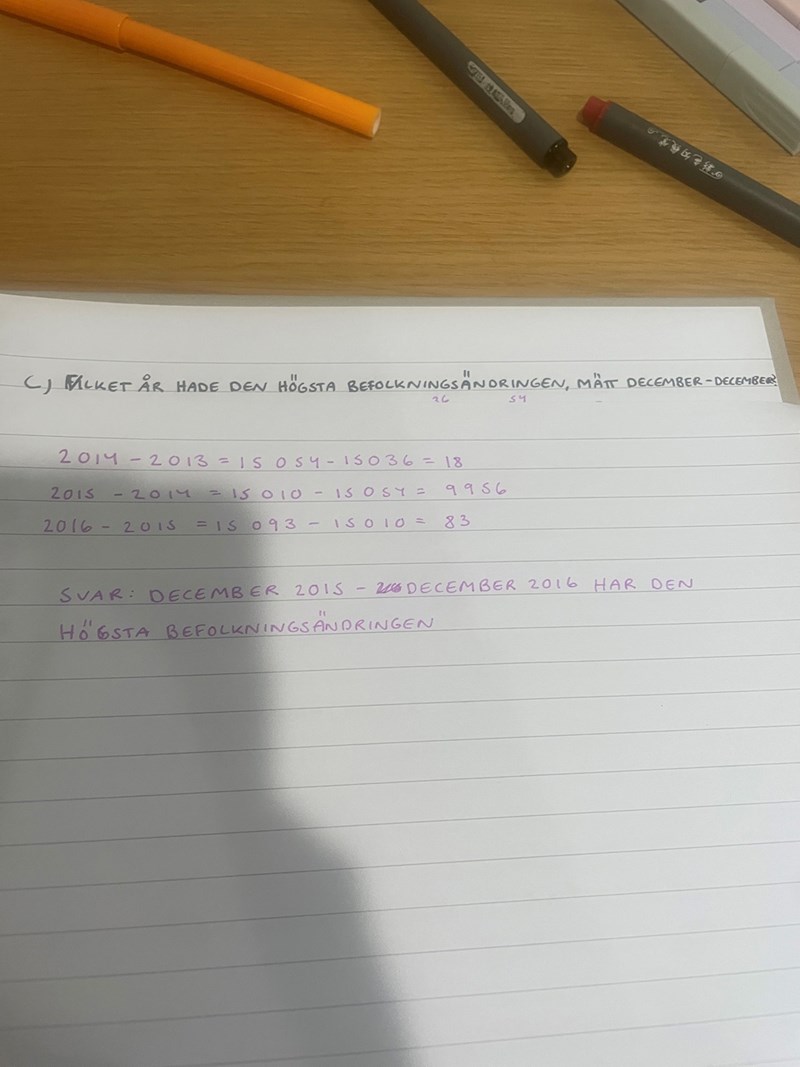 C) VILKET ÅR HADE DEN HÖGSTA BEFOLKNINGSÄNDRINGEN, MÄTT DECEMBER-DECEMBER?
36 54
2014 - 2013 = 15 054 - 15036 = 18
2015 - 2014 = 15 010 - 15 054 = 9956
2016 - 2015 = 15 093 - 15 010 = 83
SVAR: DECEMBER 2015 - DECEMBER 2016 HAR DEN
HÖGSTA BEFOLKNINGSÄNDRINGEN